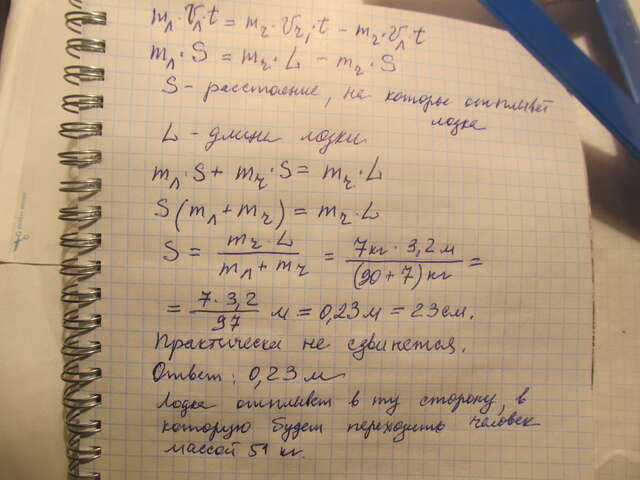 m_л·v_л t = m_2·v_2,·t − m_2·v_л·t
m_л·S = m_2·L − m_2·S
S - расстояние, на которы отплывёт
лодка
L - длина лодки.
m_л·S + m_2·S = m_2·L
S(m_л + m_2) = m_2·L
S = m_2·L / m_л + m_2 = 7кг·3,2м / (90+7)кг =
= 7·3,2 / 97 м = 0,23м = 23см.
Практически не сдвинется.
Ответ: 0,23 м
лодка отплывёт в ту сторону, в
которую будет переходить человек
массой 51 кг.